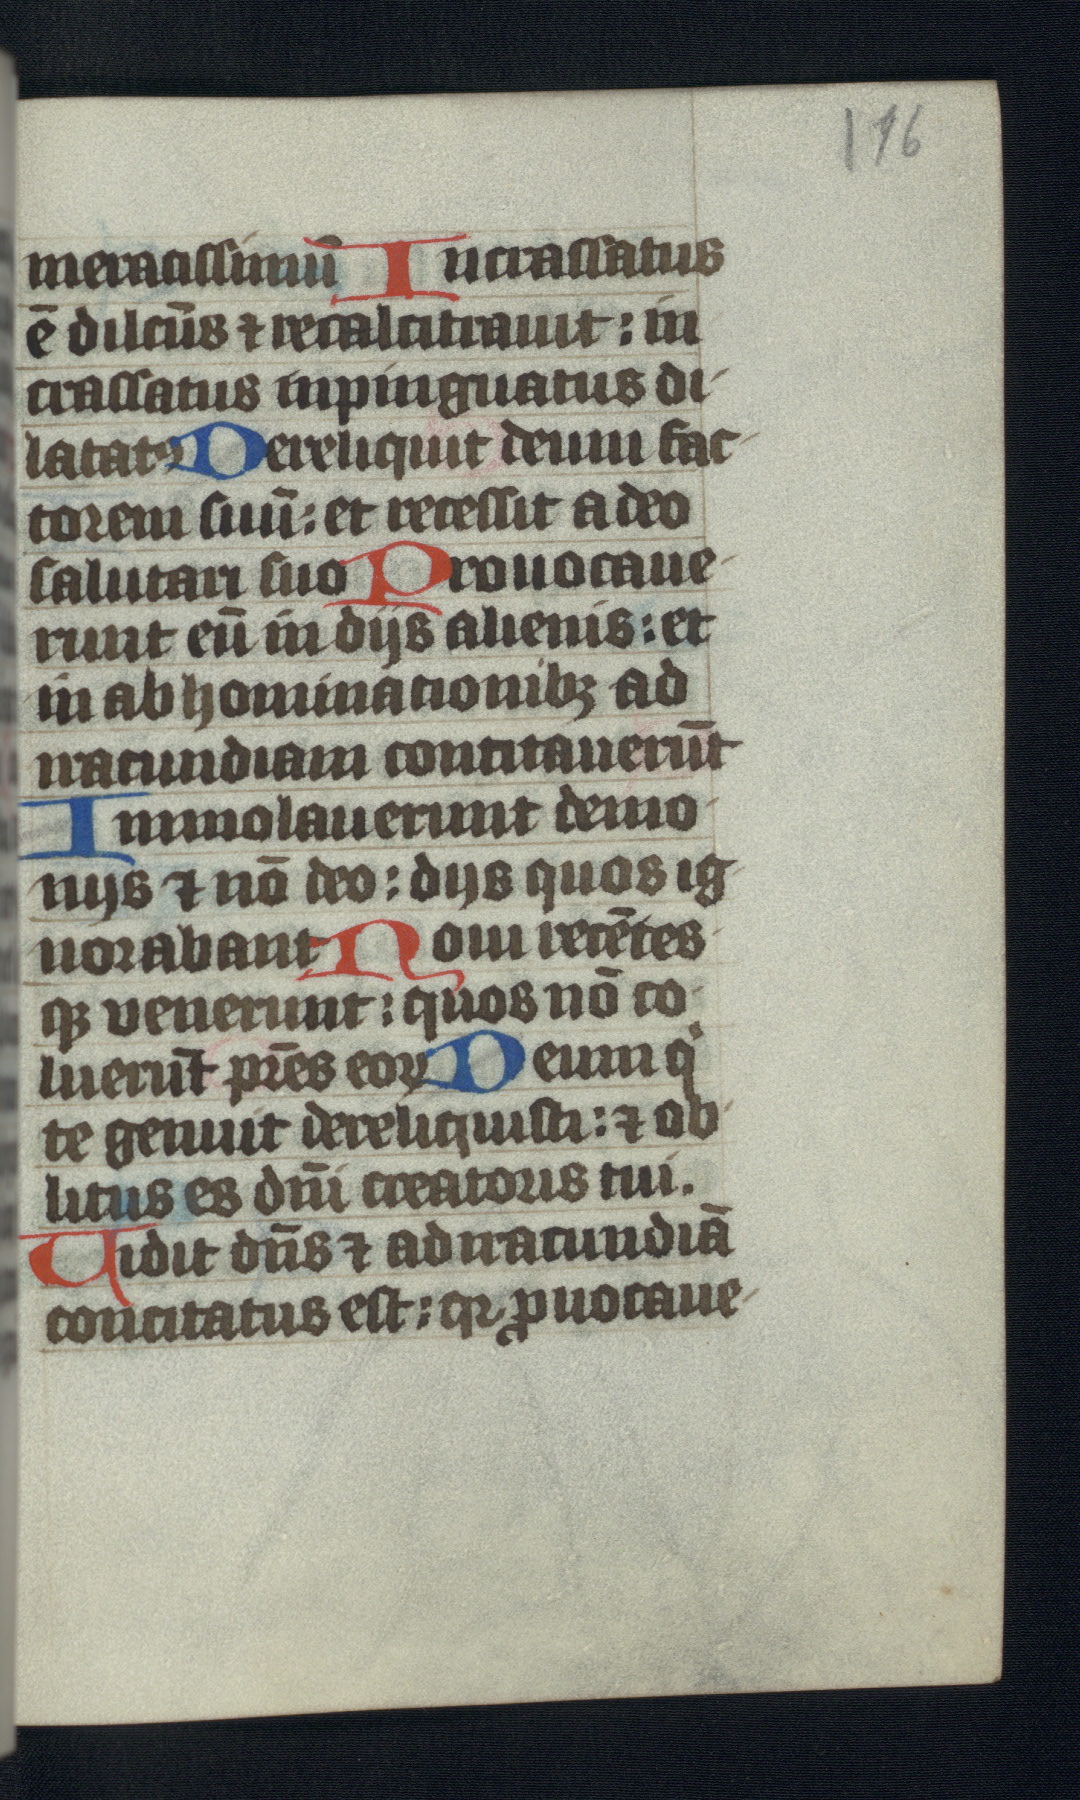 116
meracissimū Incrassatus
ē dilcūs ⁊ recalcitrauit : in
crassatus inpinguatus di-
latatꝰ Dereliquit deum fac-
torem suū : et recessit a deo
salutari suo Prouocaue-
runt eū in dijs alienis : et
in abhominacionibꝫ ad
iracundiam concitauerūt
Immolauerunt demo-
nijs ⁊ nō deo : dijs quos ig-
norabant Noui recētes-
qꝫ venerunt : quos nō co-
luerūt pr̄es eoꝝ Deum q
te genuit dereliquisti : ⁊ ob-
litus es dn̄i creatoris tui.
Uidit dn̄s ⁊ ad iracundiā
concitatus est : qꝛ ꝓuocaue-